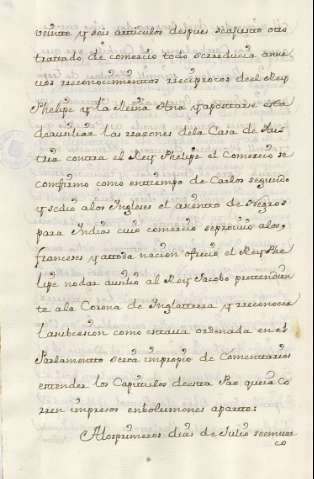 veinte y seis articulos despues se ajusto otro
tratado de comercio todo se reducia a nue
vos reconocimientos reciprocos del Rey
Phelipe y la Reina Ana y apartarse esta
de auxiliar las rasones de la Casa de Aus
tria contra el Rey Phelipe el Comercio se
comfirmo como en tiempo de Carlos segundo
y se dio a los Ingleses el asiento de Negros
para Indias cuio comercio se proivio a los
franceses y a toda nacion ofrecio el Rey Phe
lipe no dar auxilio al Rey Jacobo pretendien
te a la Corona de Inglaterra y reconocer
la subcesion como estava ordenada en el
Parlamento sería impropio de Comentarios
estender los Capitulos de esta Paz que ia co
rren impresos en bolumenes aparte:
A los primeros dias de Julio se embar
co